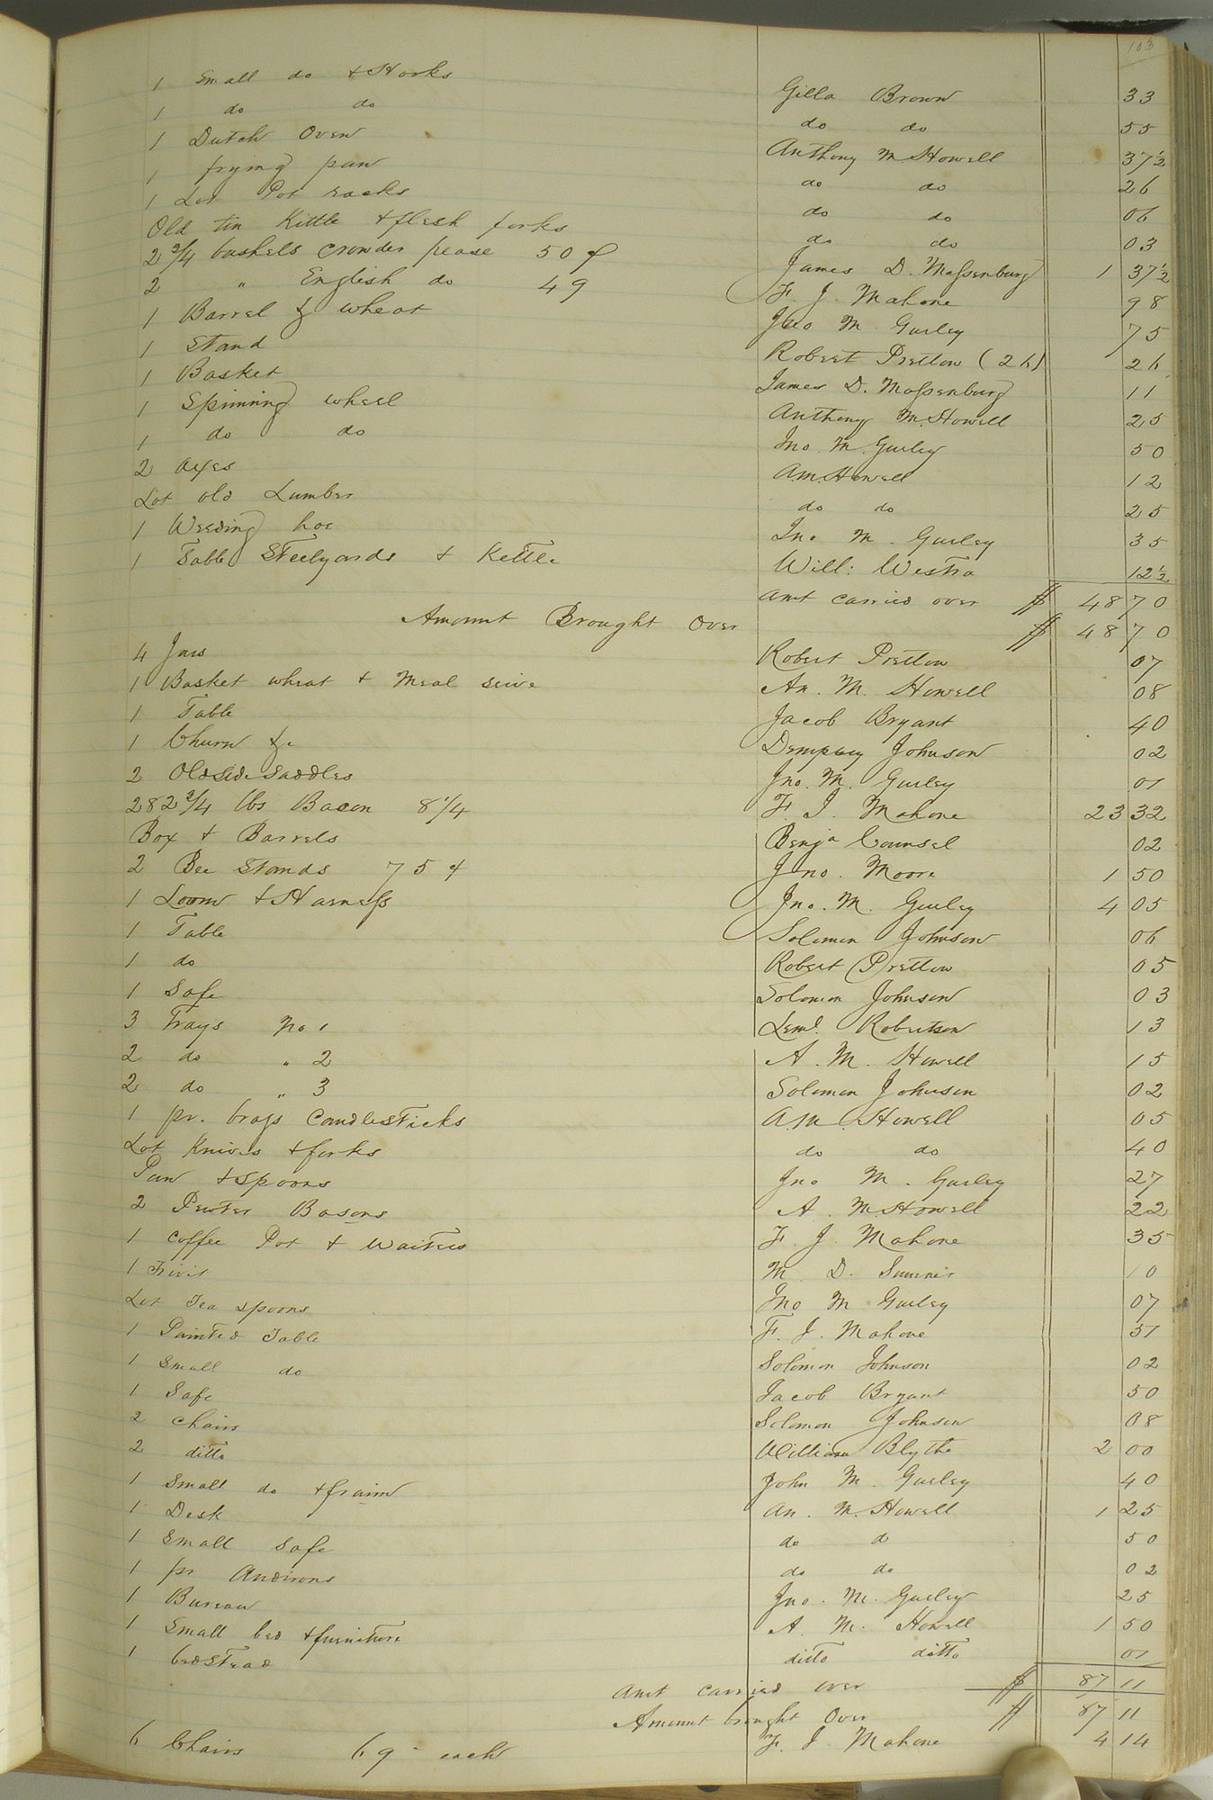 103
1 Small do + Hooks Gilla Brown 33
1 do do do do 55
1 Dutch Oven Anthony M Howell 37 1/2
1 frying pan do do 26
1 Lot Pot racks do do 06
Old tin Kittle + flesh forks do do 03
2 3/4 bashels crowder pease 50 ¢ James D. Massenburg 1 37 1/2
2 " English do 49 F. J. Mahone 98
1 Barrel & wheat Jno M. Gurley 75
1 Stand Robert Pretlow (26) 26
1 Basket James D. Massenburg 11
1 Spinning wheel Anthony M. Howell 25
1 do do Jno. M. Gurley 50
2 axes A.M. Howell 12
Lot old Lumber do do 25
1 Weeding hoe Jno. M. Gurley 35
1 Table Steelyards + Kettle Will: Westra 12 1/2
amt carried over $ 48 70
Amount Brought Over $ 48 70
4 Jars Robert Pretlow 07
1 Basket wheat + Meal seive An. M. Howell 08
1 Table Jacob Bryant 40
1 Churn &c Dempsey Johnson 02
2 Old Side Saddles Jno. M. Gurley 01
282 3/4 lbs Bacon 8 1/4 F. J. Mahone 23 32
Box + Barrels Benja Counsel 02
2 Bee Stands 75 ¢ Jno. Moore 1 50
1 Loom + Harness Jno. M. Gurley 4 05
1 Table Solomon Johnson 06
1 do Robert Pretlow 05
1 Safe Solomon Johnson 03
3 Trays No 1 Leml. Robertson 13
2 do " 2 A. M. Howell 15
2 do " 3 Solomon Johnson 02
1 pr. brass Candlesticks A.M. Howell 05
Lot Knives + forks do do 40
Pan + spoons Jno M. Gurley 27
2 Pewter Basons A. M. Howell 22
1 Coffee Pot + Waiters F. J. Mahone 35
1 Trivit M. D. Sumner 10
Lot Tea spoons Jno M Gurley 07
1 Painted Table F. J. Mahone 31
1 Small do Solomon Johnson 02
1 Safe Jacob Bryant 50
2 Chairs Solomon Johnson 08
2 ditto William Blythe 2 00
1 Small do + fraim John M. Gurley 40
1 Desk An. M. Howell 1 25
1 Small Safe do d 50
1 pr Andirons do do 02
1 Bureau Jno. M. Gurley 25
1 Small bed + furniture A. M. Howell 1 50
1 bedstead ditto ditto 01
amt carried over $ 87 11
Amount brought Over $ 87 11
6 Chairs 69 each F. J. Mahone 4 14